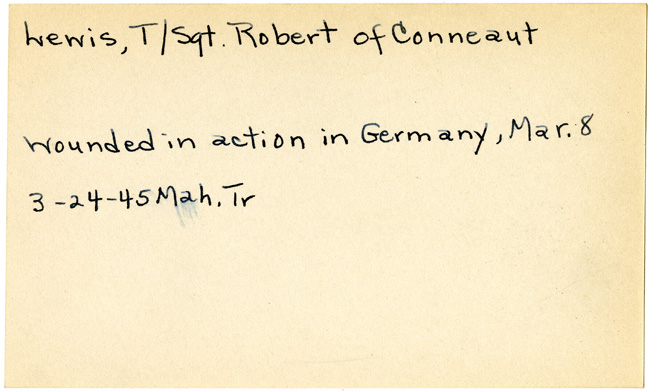 Lewis, T/Sgt. Robert of Conneaut
Wounded in action in Germany, Mar. 8
3-24-45 Mah. Tr